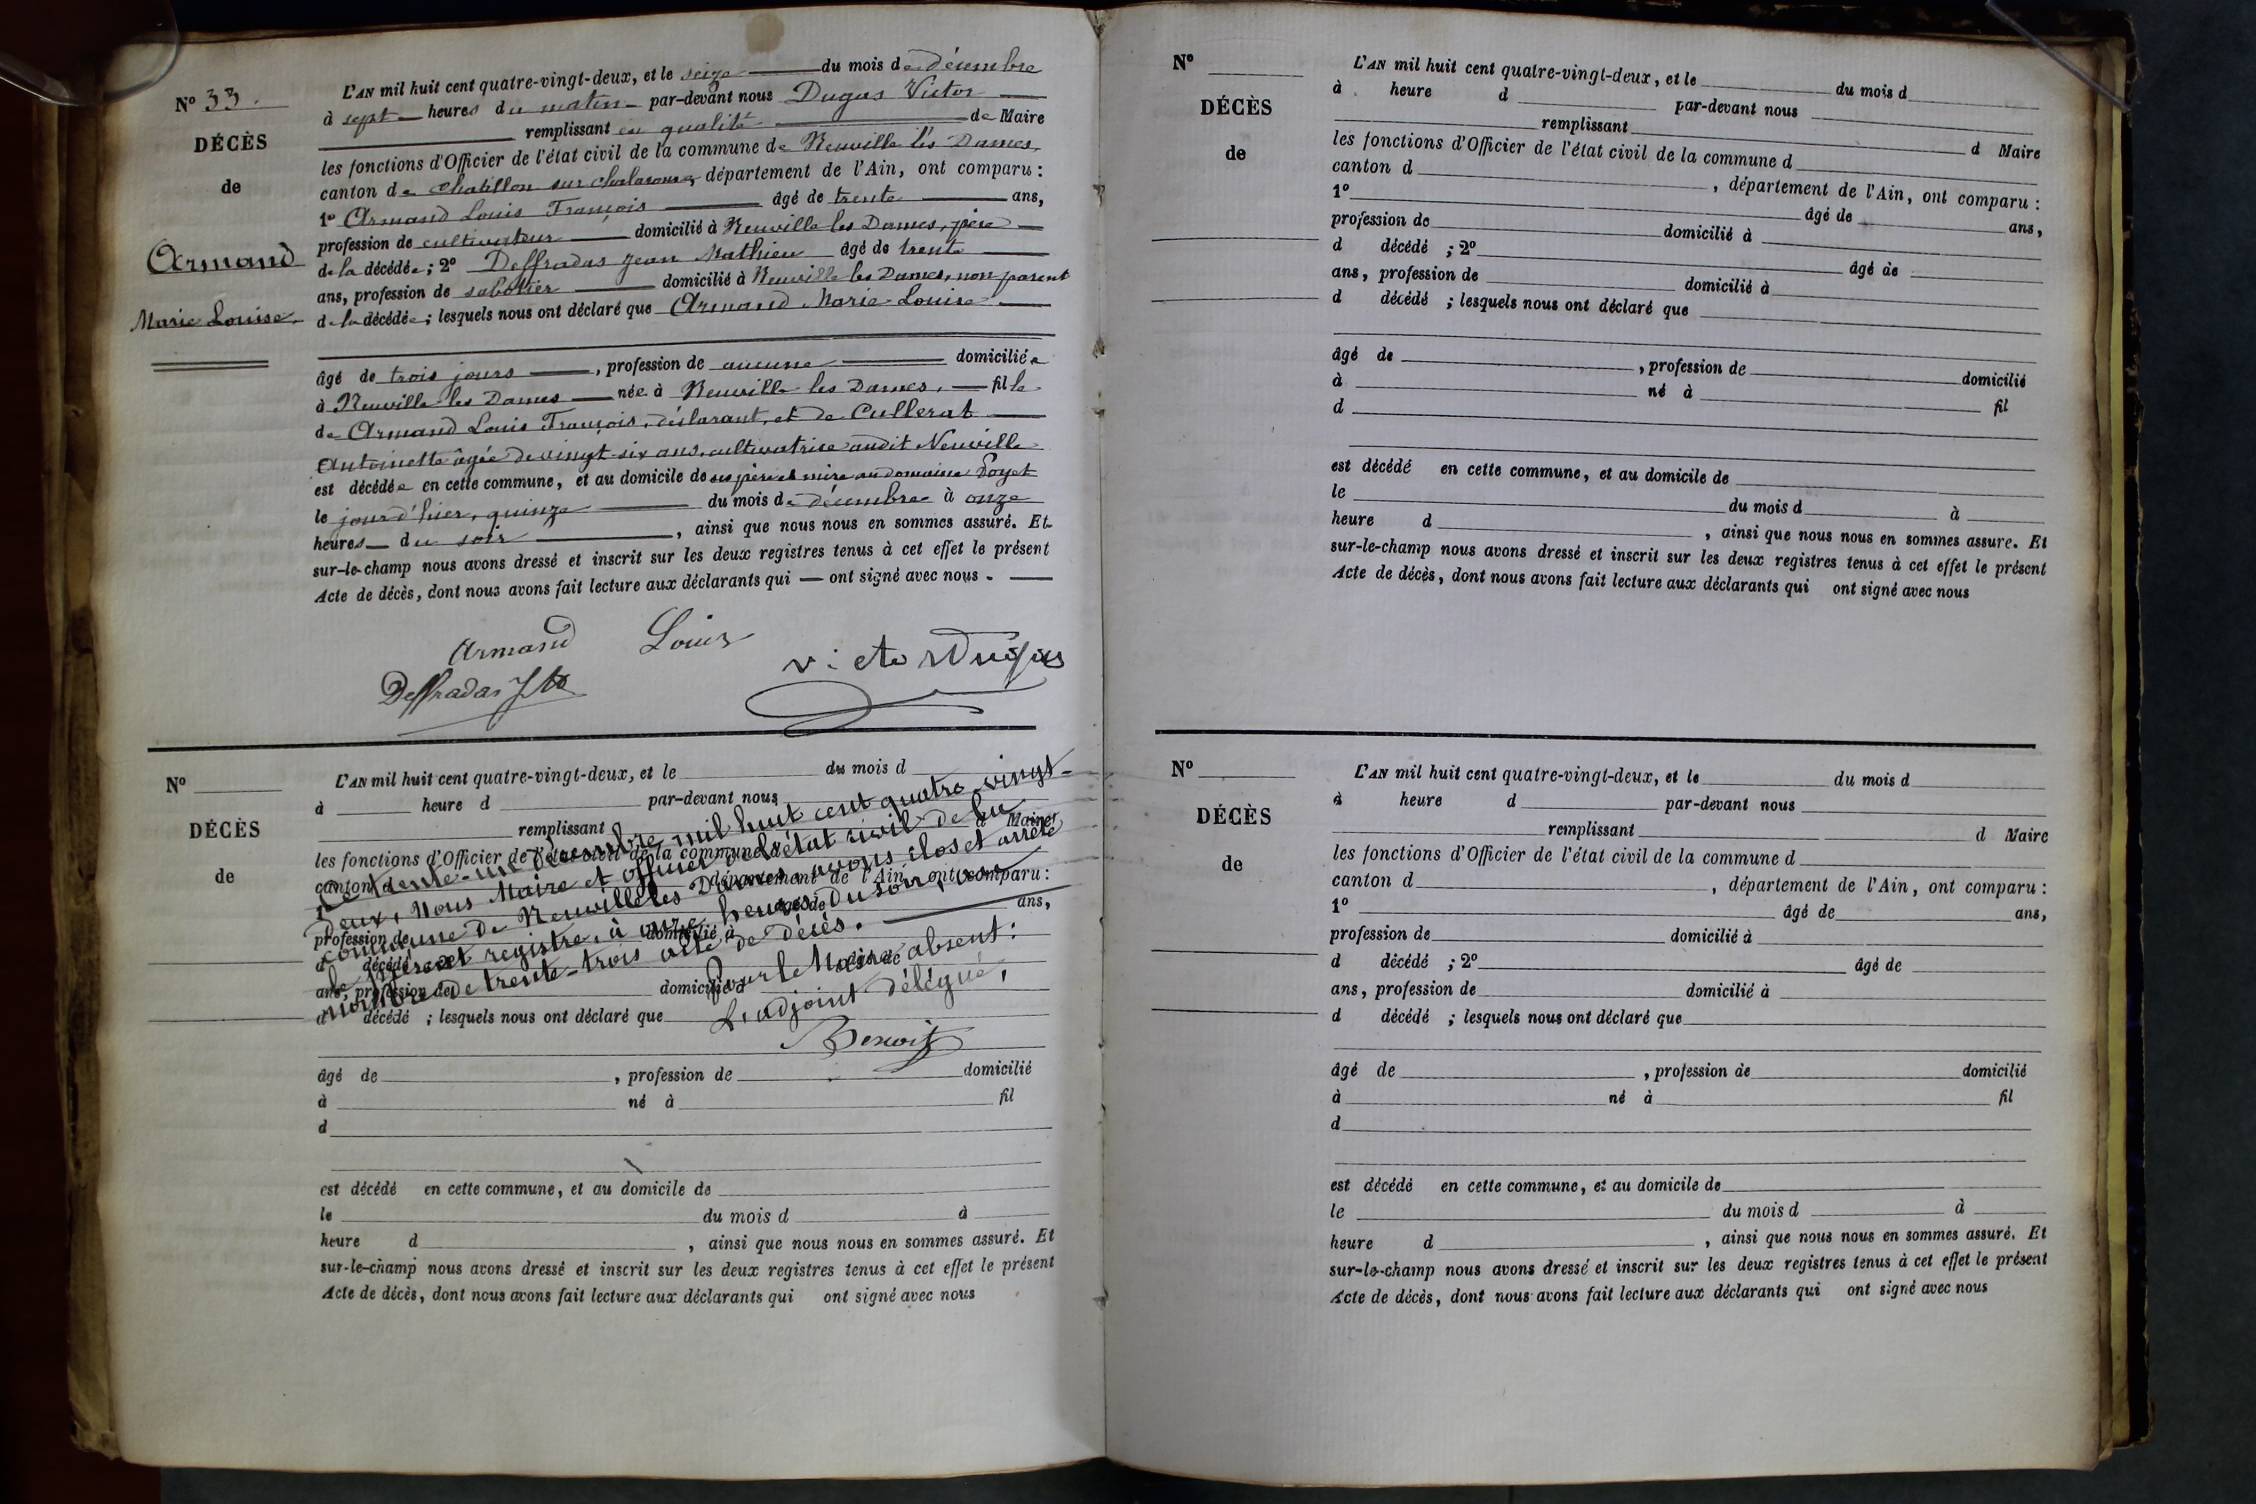 N° 33.
DÉCÈS
de
Armand
Marie Louise.
L'AN mil huit cent quatre-vingt-deux, et le seize du mois de décembre
à sept heures du matin par-devant nous Dugas Victor
remplissant en qualité de Maire
les fonctions d'Officier de l'état civil de la commune de Neuville les Dames,
canton de Chatillon sur Chalaronne, département de l'Ain, ont comparu :
1° Armand Louis François âgé de trente ans,
profession de cultivateur domicilié à Neuville les Dames, père
de la décédée ; 2° Deffradas Jean Mathieu âgé de trente
ans, profession de sabotier domicilié à Neuville les Dames, non parent
de la décédée ; lesquels nous ont déclaré que Armand Marie Louise
âgé de trois jours, profession de aucune domiciliée
à Neuville les Dames née à Neuville les Dames, fille
de Armand Louis François, déclarant, et de Cullerat
Antoinette âgée de vingt-six ans, cultivatrice audit Neuville
est décédée en cette commune, et au domicile de ses père et mère au domaine Poyet
le jour d'hier, quinze du mois de décembre à onze
heures du soir, ainsi que nous nous en sommes assuré. Et
sur-le-champ nous avons dressé et inscrit sur les deux registres tenus à cet effet le présent
Acte de décès, dont nous avons fait lecture aux déclarants qui ont signé avec nous.
Armand Louis
Deffradas
Victor Dugas
N°
DÉCÈS
de
L'AN mil huit cent quatre-vingt-deux, et le du mois d
à heure d par-devant nous
remplissant d Maire
les fonctions d'Officier de l'état civil de la commune d
canton d, département de l'Ain, ont comparu :
1° âgé de ans,
profession de domicilié à
d décédé ; 2° âgé de
ans, profession de domicilié à
d décédé ; lesquels nous ont déclaré que
Ce trente-un décembre mil huit cent quatre-vingt-
deux, Nous Maire et officier de l'état civil de la
commune de Neuville les Dames, avons clos et arrêté
le présent registre, à onze heures du soir, au
nombre de trente-trois acte de décès.
Pour le Maire absent :
L'adjoint délégué,
Benoit
âgé de, profession de domicilié
à né à fil
d
est décédé en cette commune, et au domicile de
le du mois d à
heure d, ainsi que nous nous en sommes assuré. Et
sur-le-champ nous avons dressé et inscrit sur les deux registres tenus à cet effet le présent
Acte de décès, dont nous avons fait lecture aux déclarants qui ont signé avec nous
N°
DÉCÈS
de
L'AN mil huit cent quatre-vingt-deux, et le du mois d
à heure d par-devant nous
remplissant d Maire
les fonctions d'Officier de l'état civil de la commune d
canton d, département de l'Ain, ont comparu :
1° âgé de ans,
profession de domicilié à
d décédé ; 2° âgé de
ans, profession de domicilié à
d décédé ; lesquels nous ont déclaré que
âgé de, profession de domicilié
à né à fil
d
est décédé en cette commune, et au domicile de
le du mois d à
heure d, ainsi que nous nous en sommes assure. Et
sur-le-champ nous avons dressé et inscrit sur les deux registres tenus à cet effet le présent
Acte de décès, dont nous avons fait lecture aux déclarants qui ont signé avec nous
N°
DÉCÈS
de
L'AN mil huit cent quatre-vingt-deux, et le du mois d
à heure d par-devant nous
remplissant d Maire
les fonctions d'Officier de l'état civil de la commune d
canton d, département de l'Ain, ont comparu :
1° âgé de ans,
profession de domicilié à
d décédé ; 2° âgé de
ans, profession de domicilié à
d décédé ; lesquels nous ont déclaré que
âgé de, profession de domicilié
à né à fil
d
est décédé en cette commune, et au domicile de
le du mois d à
heure d, ainsi que nous nous en sommes assuré. Et
sur-le-champ nous avons dressé et inscrit sur les deux registres tenus à cet effet le présent
Acte de décès, dont nous avons fait lecture aux déclarants qui ont signé avec nous